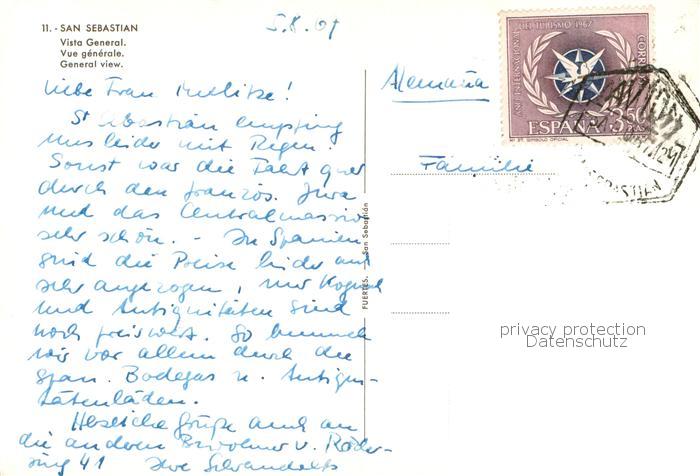 11. - SAN SEBASTIAN
Vista General.
Vue générale.
General view.
5.8.67
Liebe Frau
St Sebastian empfing
uns leider mit Regen.
Sonst war die Fahrt quer
durch den französ. Jura
und das Centralmassiv
sehr schön. - In Spanien
sind die Preise leider auch
sehr angezogen, nur Kognak
und Antiquitäten sind
noch preiswert. So bummeln
wir vor allem durch die
span. Bodegas u. Antiqui-
tätenläden.
Herzliche Grüße auch an
die anderen Bewohner v. Röder-
ring 41 Ihre
FUERTES. San Sebastián
Alemaña
Familie
AÑO INTERNACIONAL DEL TURISMO 1967
CORREOS
ESPAÑA 3,50 PTAS
AVION
SEBASTIAN
privacy protection
Datenschutz